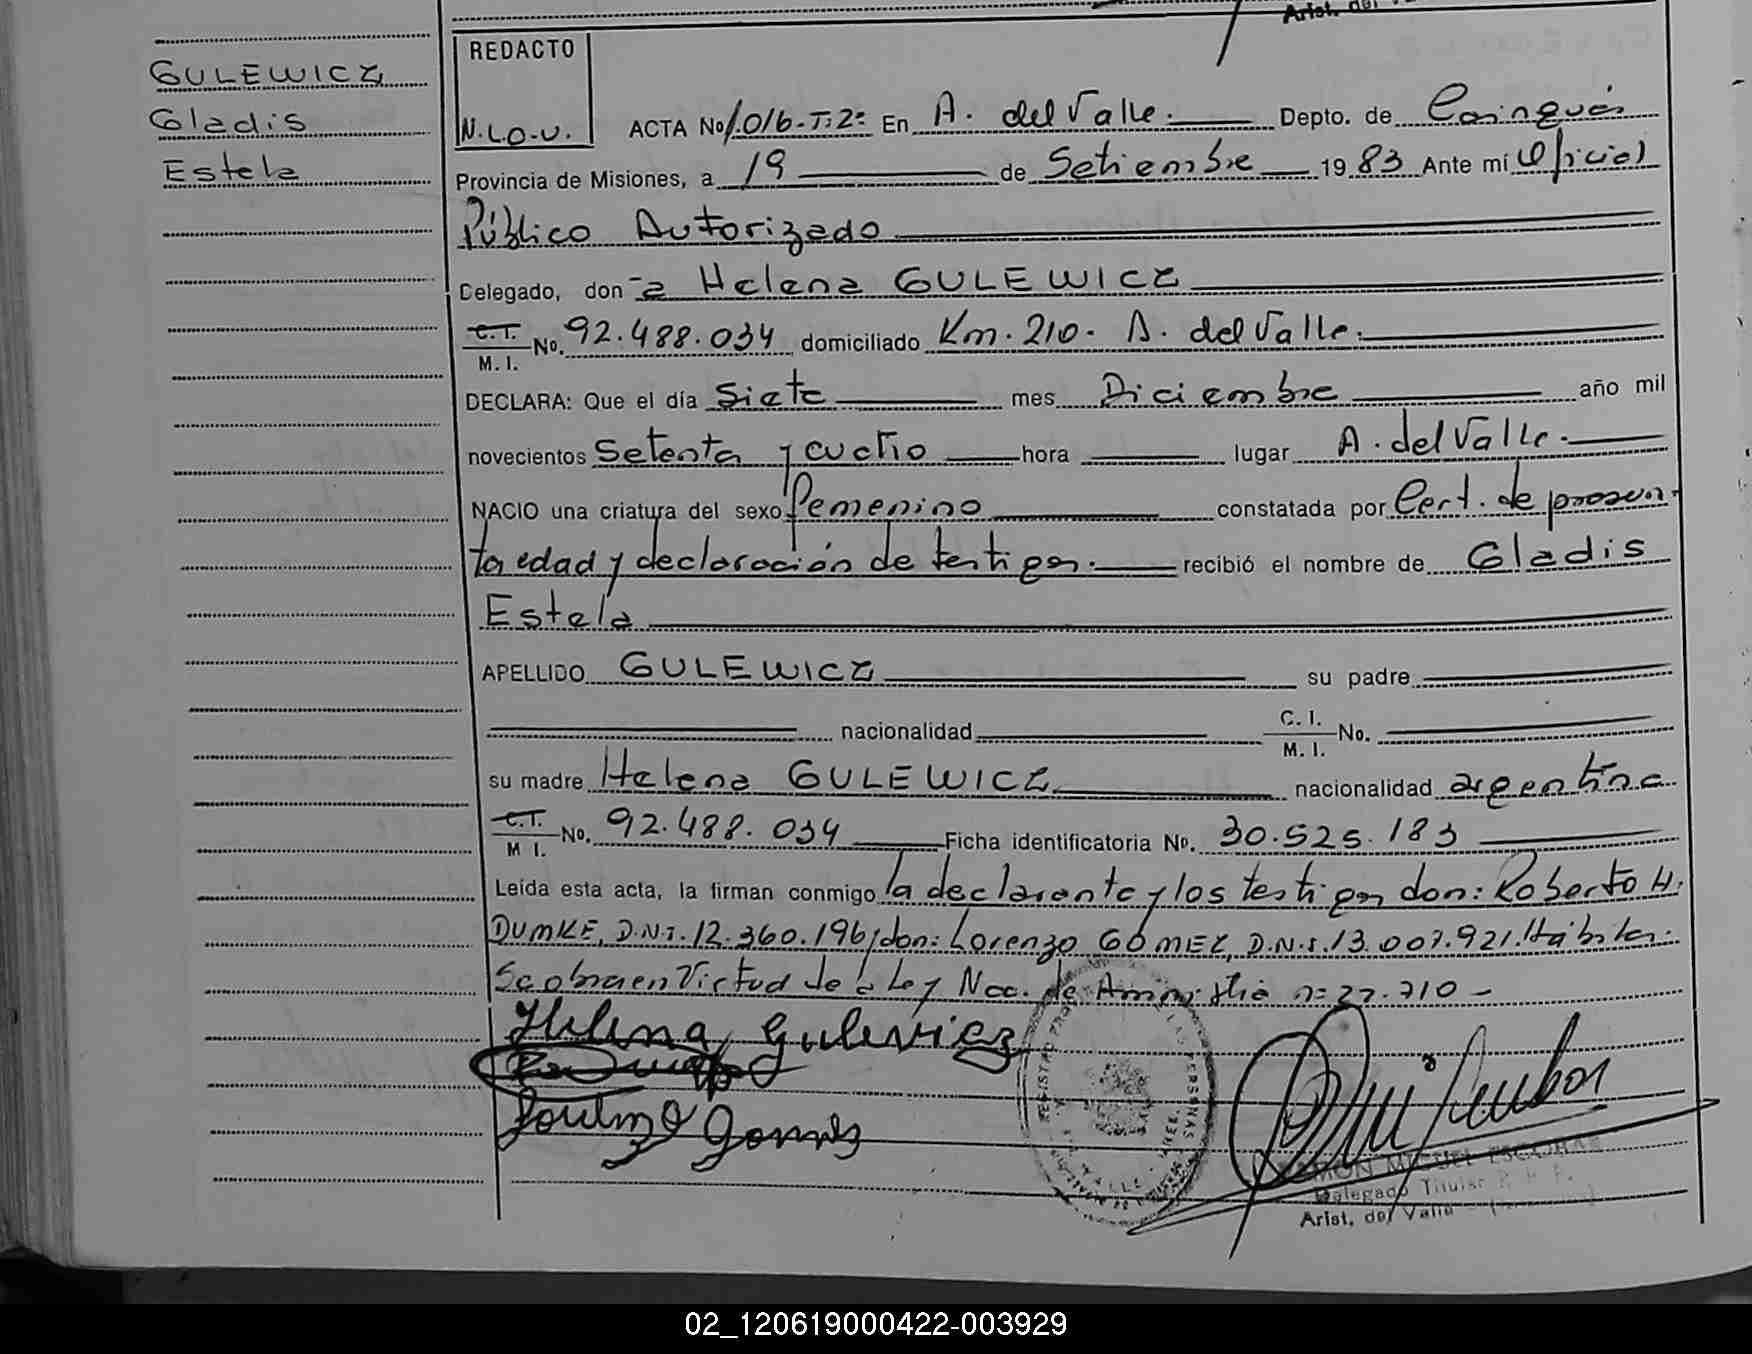 Arist. del
GULEWICZ
Gladis
Estela
REDACTO
N.L.O.U.
ACTA No 1.016-T:2º En A. del Valle. Depto. de Cainguás
Provincia de Misiones, a 19 de Setiembre 19 83 Ante mí Oficial
Público Autorizado
Delegado, don -a Helena GULEWICZ
C.I. M. I. No. 92.488.034 domiciliado Km. 210. A. del Valle.
DECLARA: Que el día Siete mes Diciembre año mil
novecientos Setenta y cuatro hora lugar A. del Valle.
NACIO una criatura del sexo femenino constatada por Cert. de presun-
ta edad y declaración de testigos. recibió el nombre de Gladis
Estela
APELLIDO GULEWICZ su padre
nacionalidad C. I. M. I. No.
su madre Helena GULEWICZ nacionalidad argentina
C.I. M I. No. 92.488.034 Ficha identificatoria No. 30.525.183
Leída esta acta, la firman conmigo la declarante y los testigos don: Roberto H.
DUMKE, D.N.I. 12.360.196 y don: Lorenzo GOMEZ, D.N.I. 13.007.921. Hábiles.
Se obra en Virtud de la Ley Nac. de Amnistía nº 22.710 -
Helena Gulewicz
Lorenzo Gomez
REGISTRO PROV. DE LAS PERSONAS
RAMON MIGUEL ESCOBAR
Delegado Titular R. P. P.
Arist. del Valle
02_120619000422-003929